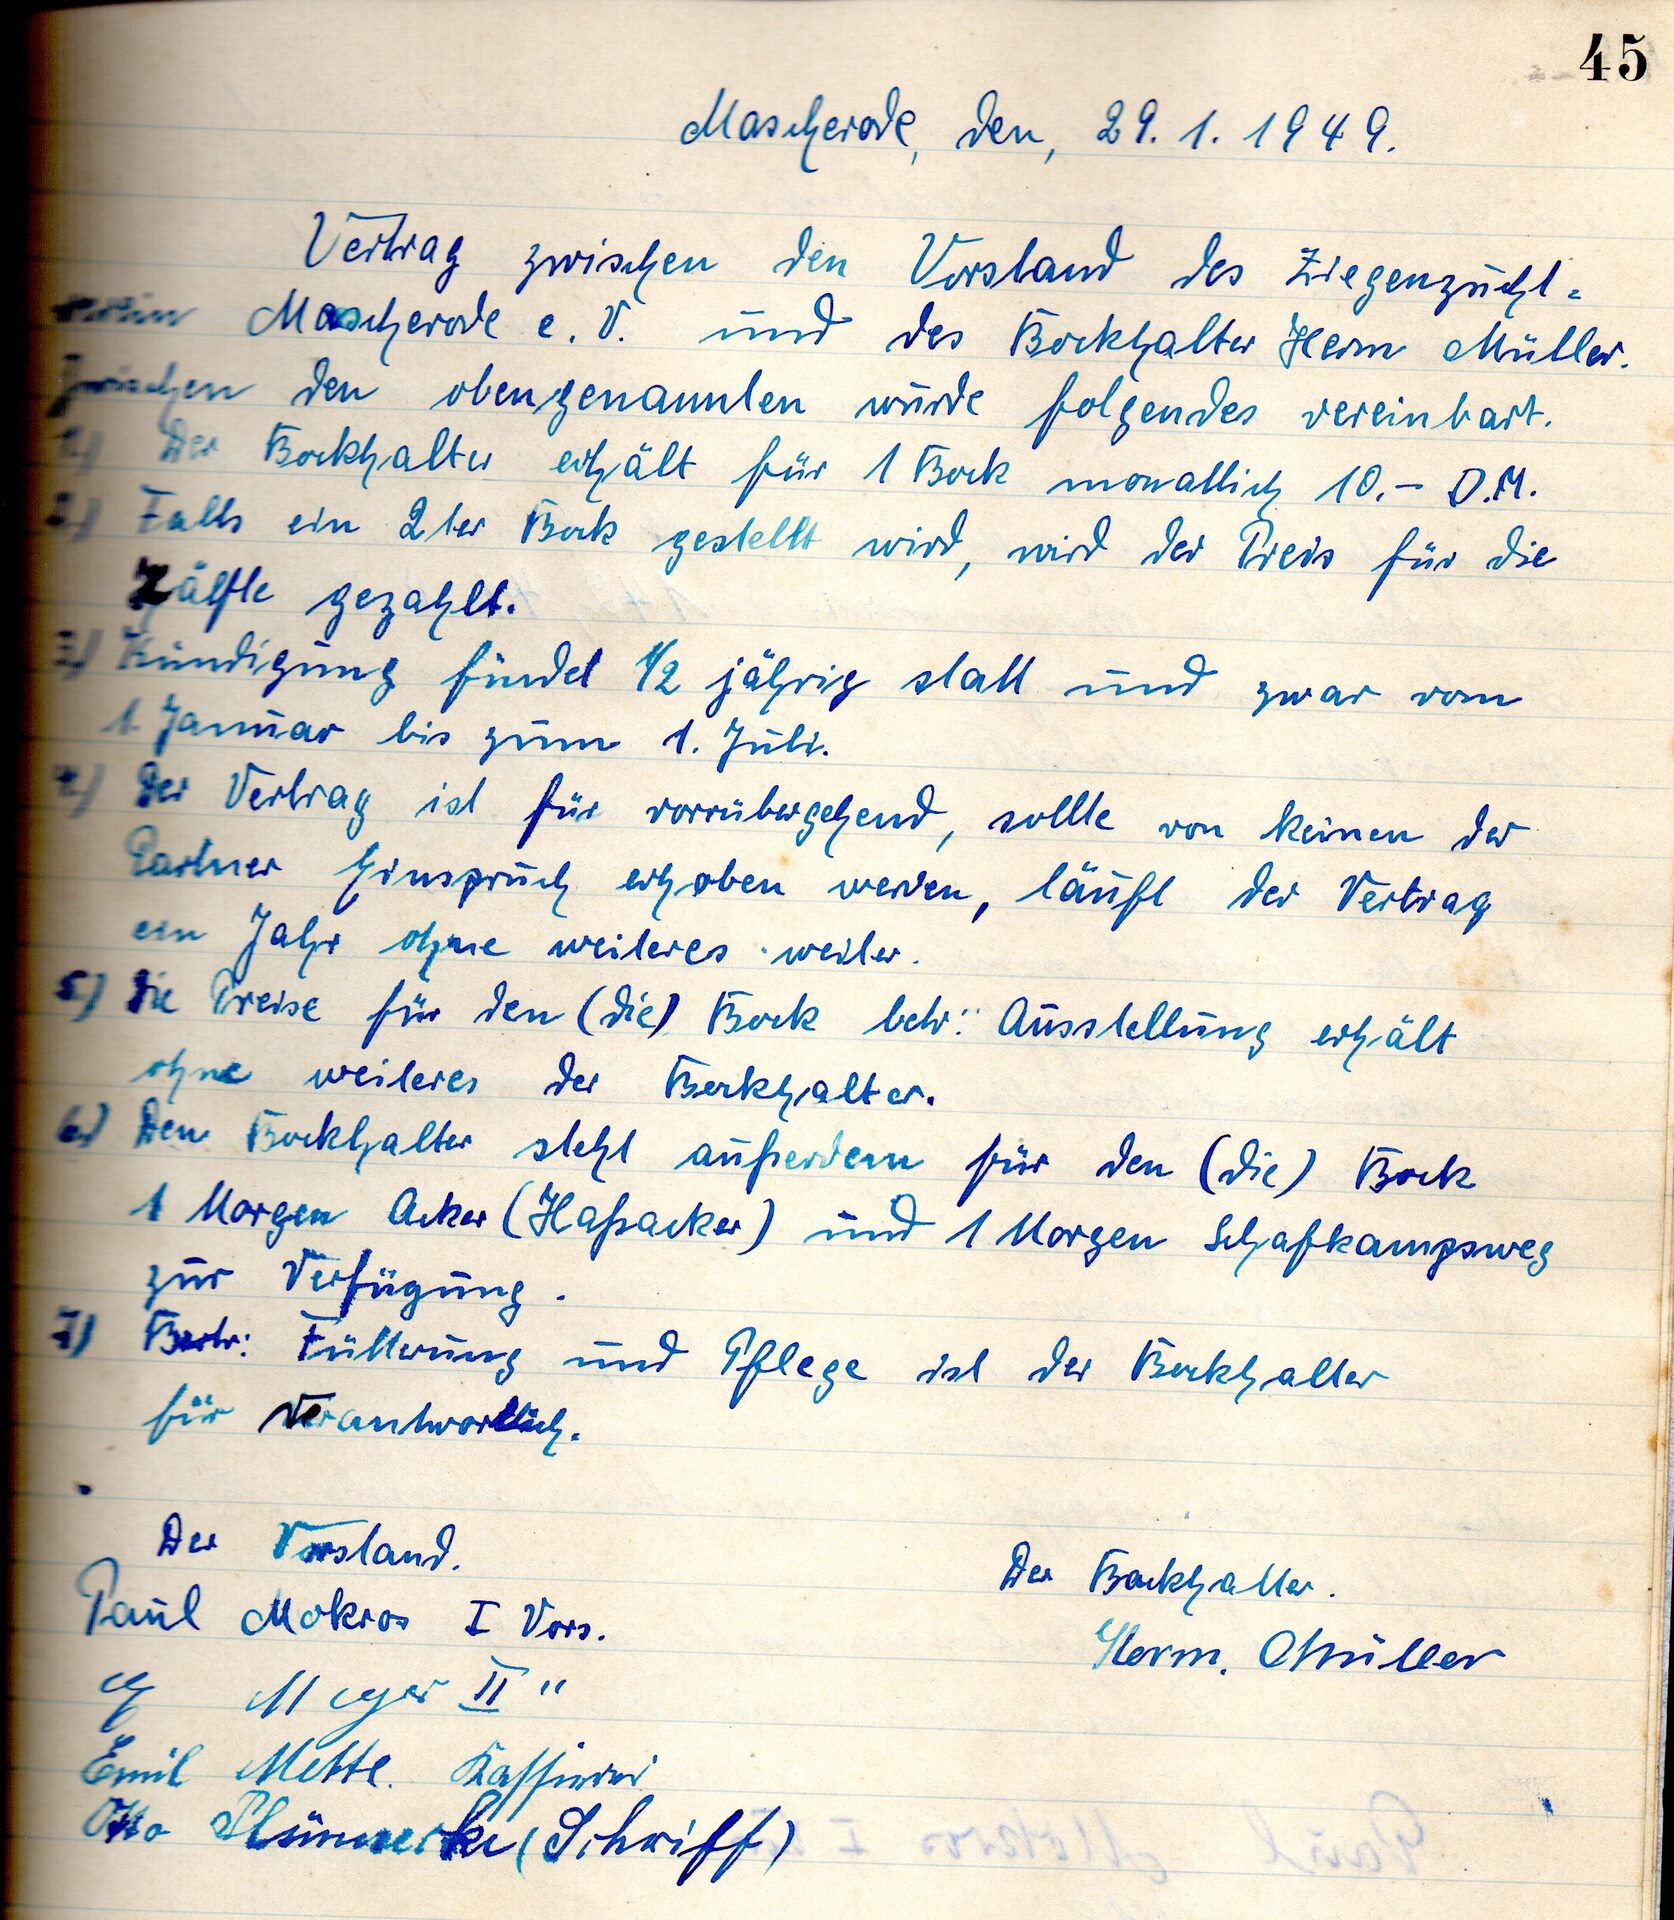 45
Mascherode, den, 29. 1. 1949.
Vertrag zwischen den Vorstand des Ziegenzucht=
verein Mascherode e. V. und des Bockhalter Herm Müller.
Zwischen den obengenannten wurde folgendes vereinbart.
1.) Der Bockhalter erhält für 1 Bock monatlich 10.– D.M.
2.) Falls ein 2ter Bock gestellt wird, wird der Preis für die
Hälfte gezahlt.
3.) Kündigung findet 1/2 jährig statt und zwar vom
1. Januar bis zum 1. Juli.
4.) Der Vertrag ist für vorrübergehend, sollte von keinen der
Partner Einspruch erhoben werden, läuft der Vertrag
ein Jahr ohne weiteres weiter.
5.) Die Preise für den (die) Bock betr: Ausstellung erhält
ohne weiteres der Bockhalter.
6.) Dem Bockhalter steht außerdem für den (die) Bock
1 Morgen Acker (Haßacker) und 1 Morgen Schafkampsweg
zur Verfügung.
7.) Betr: Fütterung und Pflege ist der Bockhalter
für verantwortlich.
Der Vorstand.
Der Bockhalter.
Paul Mokros I Vors.
Herm. Müller
Meyer II "
Emil Mette. Kassierer
Otto (Schriff)